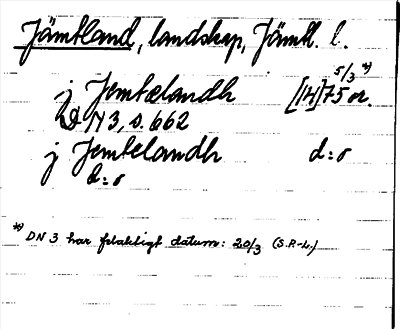 Jämtland, landskap, Jämtl. l.
5/3 *)
j Jemtelandh [14]75 or.
DN 3, s. 662
j Jemtelandh d:o
d:o
*) DN 3 har felaktigt datum: 20/3 (S.P.-L.)